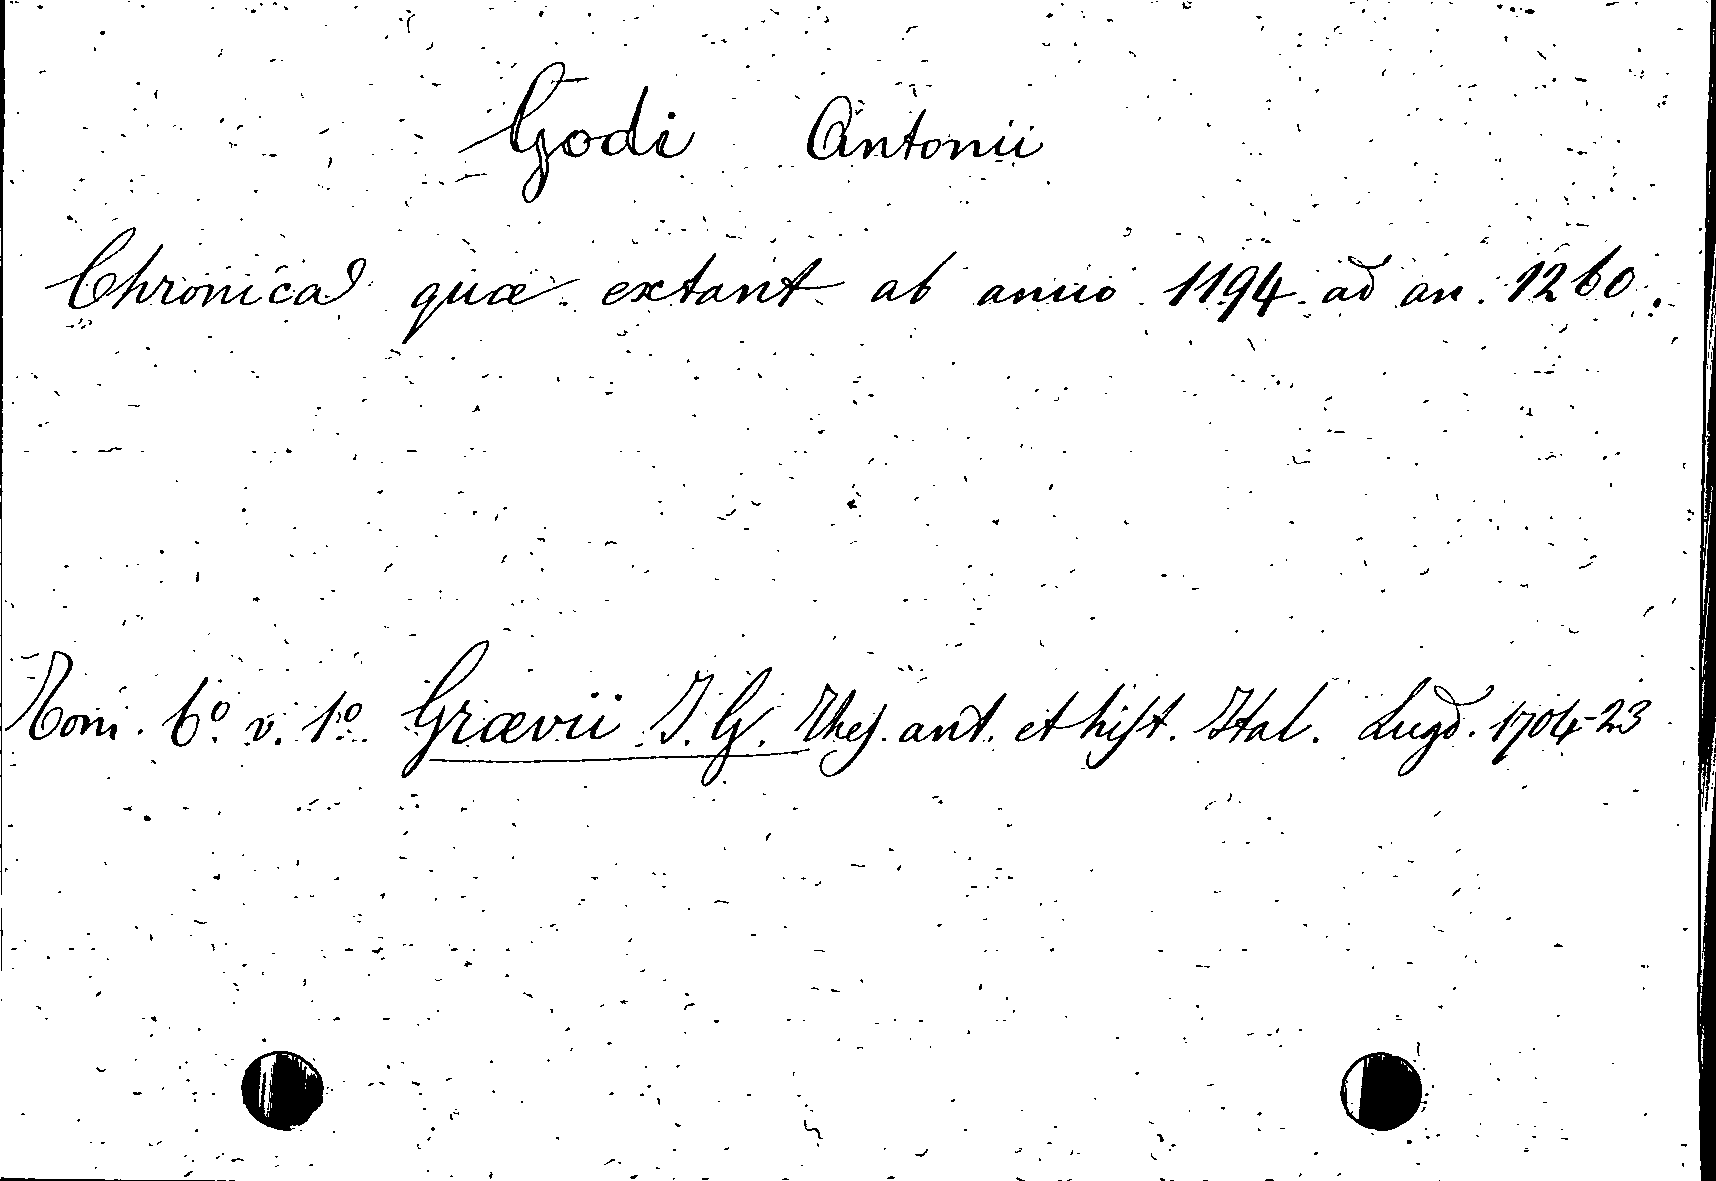 Godi Antonii
Chronica quæ extant ab anno 1194 ad an. 1260.
Tom. 6º. v. 1º. Grævii J. G. Thes. ant. et hist. Ital. Lugd. 1704-23